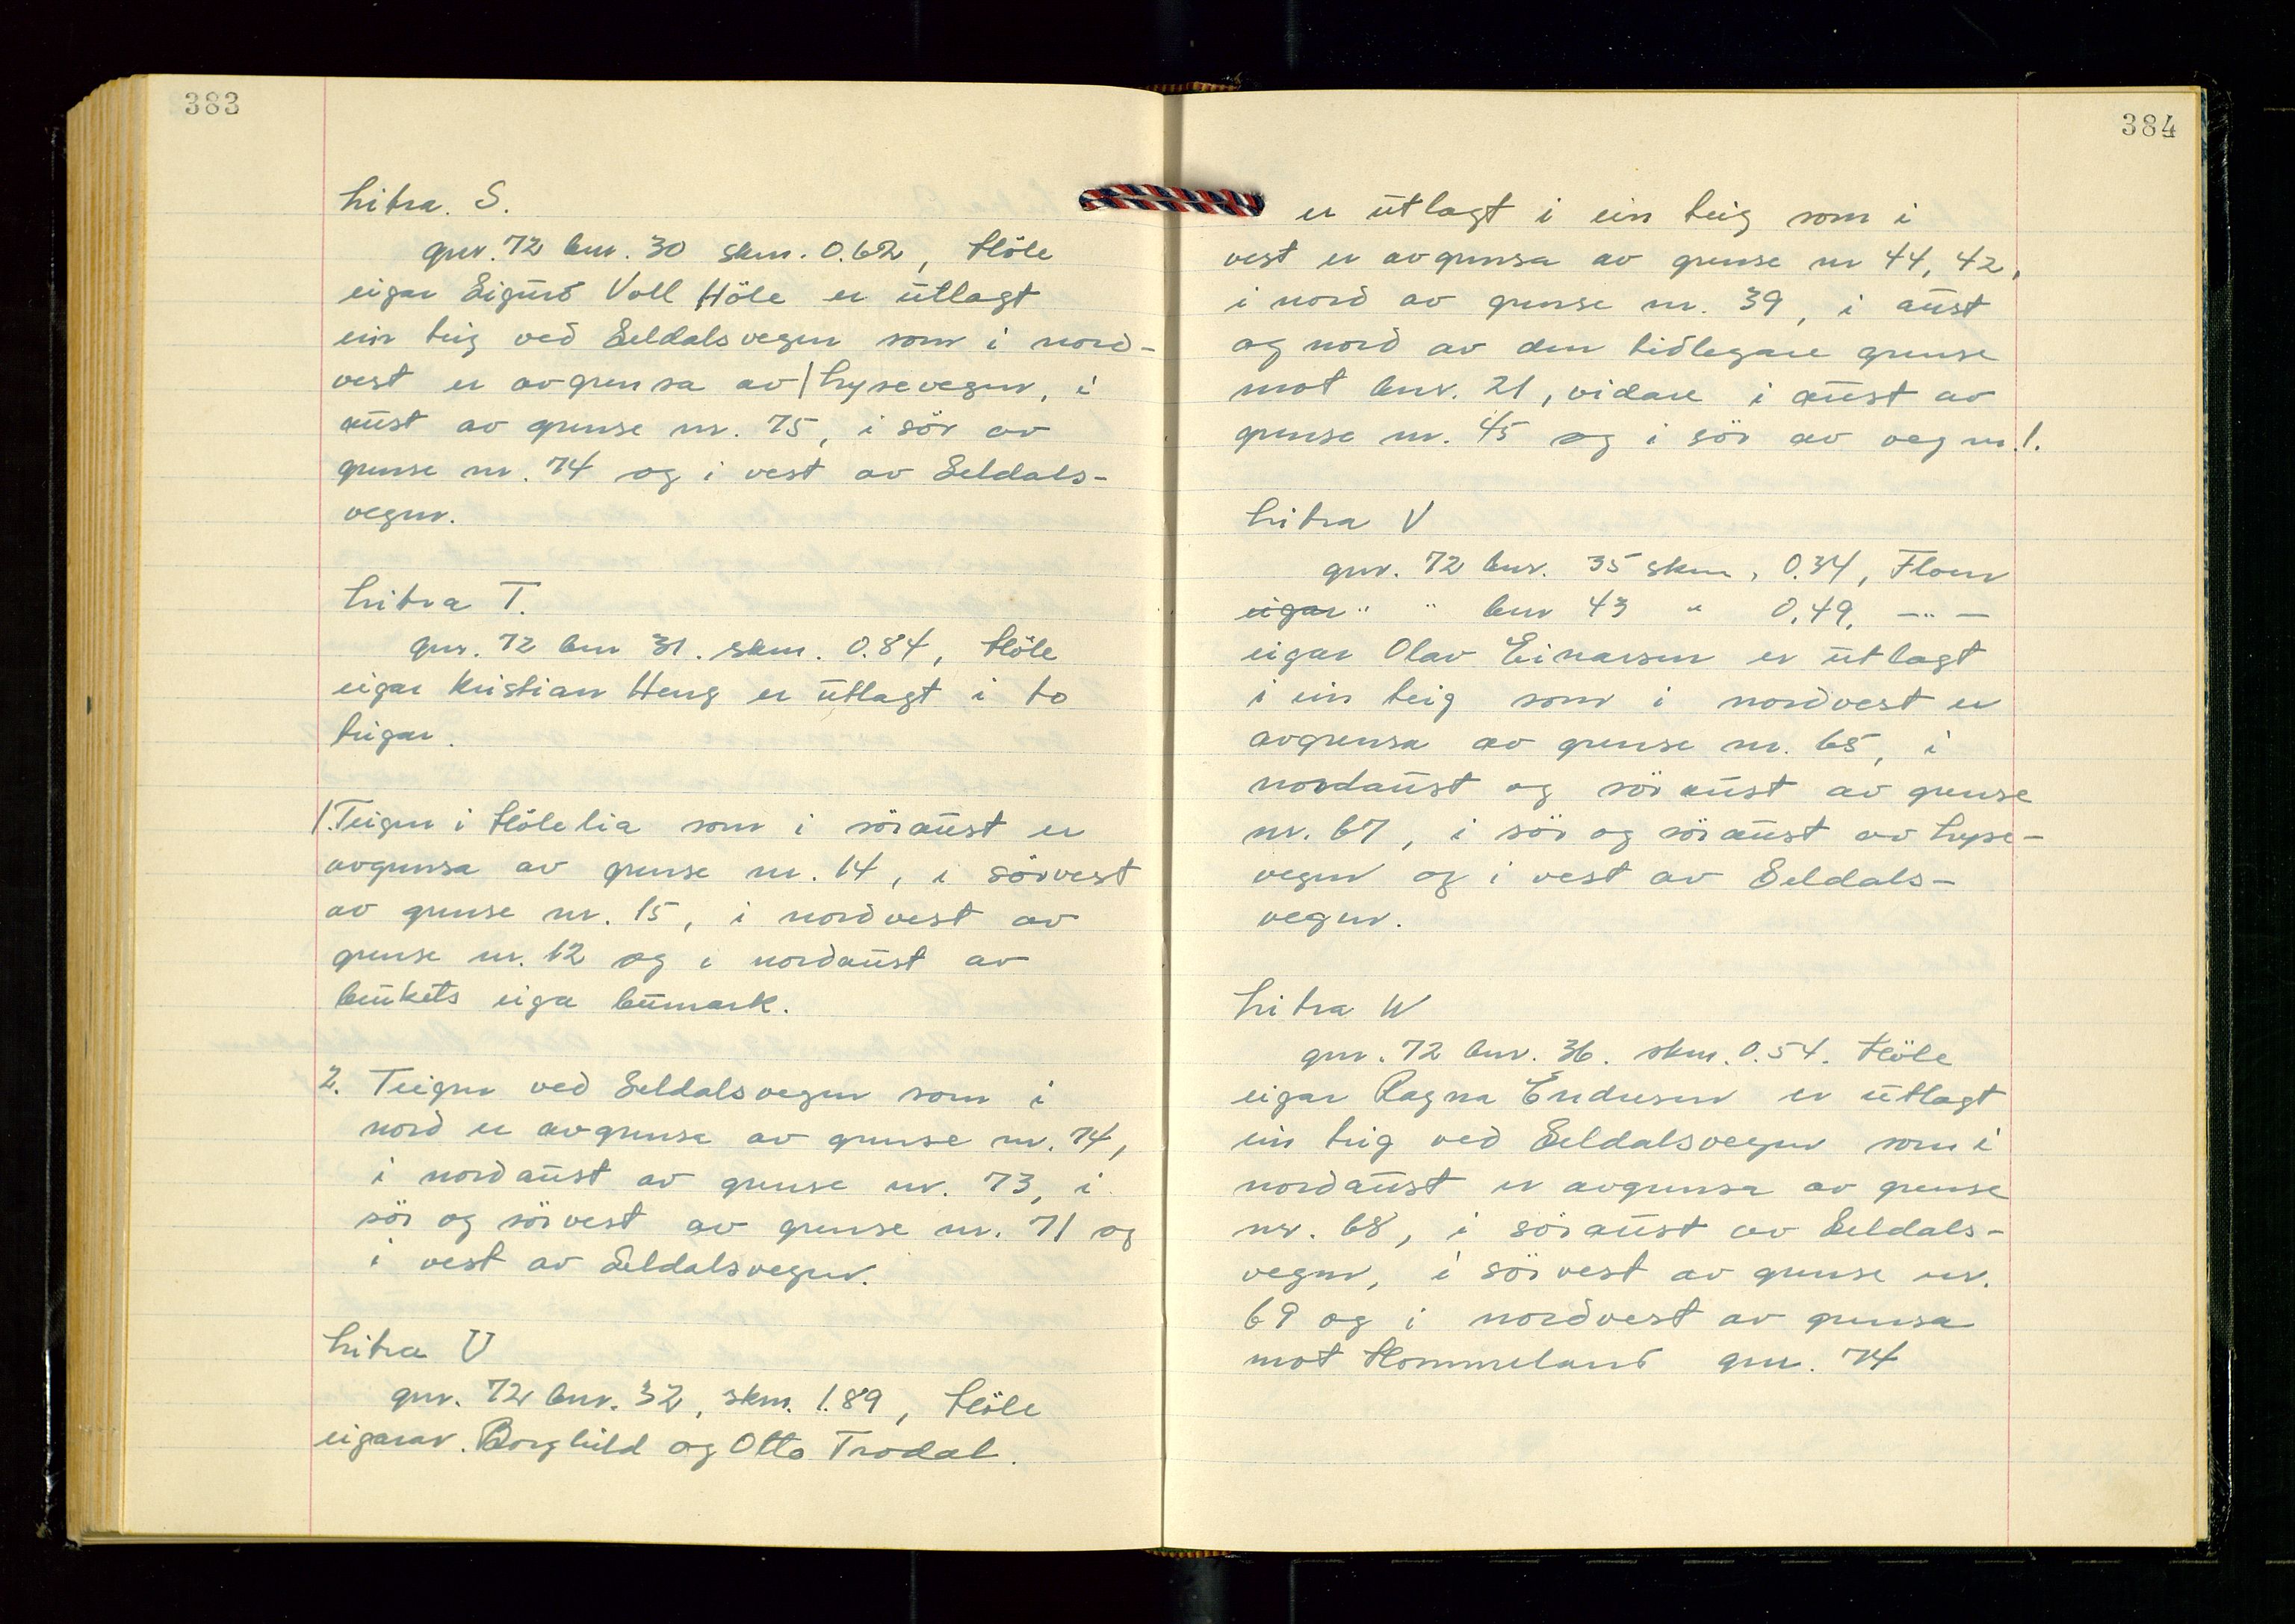 383
Litra. S.
gnr. 72 bnr. 30 skm. 0.62, Höle
eigar Sigurd Voll Höle er utlagt
ein teig ved Seldalsvegen som i nord-
vest er avgrensa av Lysevegen, i
aust av grense nr. 75, i sör av
grense nr. 74 og i vest av Seldals-
vegen.
Litra T.
gnr. 72 bnr 31. skm. 0.84, Höle
eigar Kristian Heng er utlagt i to
teigar.
1. Teigen i Hölelia som i söraust er
avgrensa av grense nr. 14, i sörvest
av grense nr. 15, i nordvest av
grense nr. 12 og i nordaust av
brukets eiga bumark.
2. Teigen ved Seldalsvegen som i
nord er avgrensa av grense nr. 74,
i nordaust av grense nr. 73, i
sör og sörvest av grense nr. 71 og
i vest av Seldalsvegen.
Litra U
gnr. 72 bnr. 32, skm. 1.89, Höle
eigarar. Borghild og Otto Trodal.
384
er utlagt i ein teig som i
vest er avgrensa av grense nr 44, 42,
i nord av grense nr. 39, i aust
og nord av den tidlegare grense
mot bnr. 21, vidare i aust av
grense nr. 45 og i sör av veg nr. 1.
Litra V
gnr. 72 bnr. 35 skm, 0.34, Floen
eigar " " bnr 43 " 0.49, —"—
eigar Olav Einarsen er utlagt
i ein teig som i nordvest er
avgrensa av grense nr. 65, i
nordaust og söraust av grense
nr. 67, i sör og söraust av Lyse-
vegen og i vest av Seldals-
vegen.
Litra W
gnr. 72 bnr. 36. skm. 0.54. Höle
eigar Ragna Endresen er utlagt
ein teig ved Seldalsvegen som i
nordaust er avgrensa av grense
nr. 68, i söraust av Seldals-
vegen, i sörvest av grense nr.
69 og i nordvest av grensa
mot Hommeland gnr. 74